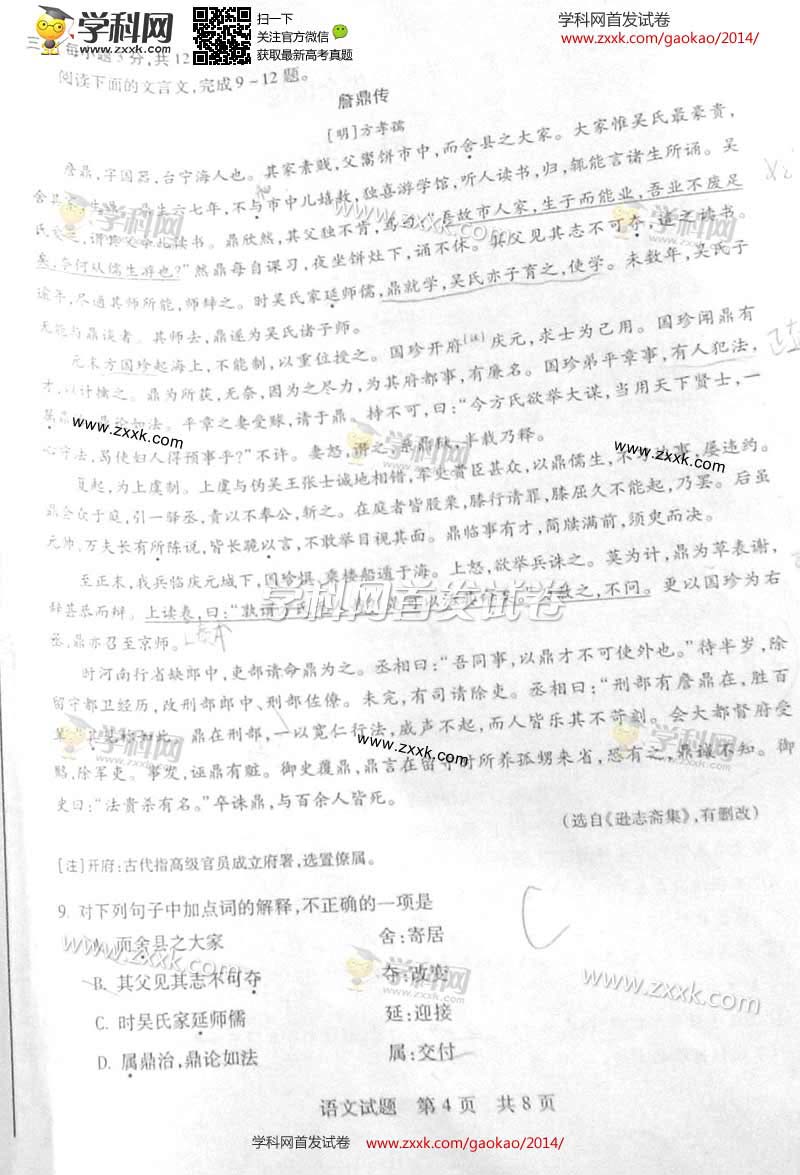 学科网
www.zxxk.com
扫一下
关注官方微信
获取最新高考真题
学科网首发试卷
www.zxxk.com/gaokao/2014/
三、每小题3分,共12
阅读下面的文言文,完成9~12题。
詹鼎传
[明]方孝孺
詹鼎,字国器,台宁海人也。其家素贱,父鬻饼市中,而舍县之大家。大家惟吴氏最豪贵,
舍其家生鼎。鼎生六七年,不与市中儿嬉敖,独喜游学馆,听人读书,归,辄能言诸生所诵。吴
氏爱之,谓其父令儿读书。鼎欣然,其父独不肯,骂曰:“吾故市人家,生子而能业,吾业不废足
矣,奈何从儒生游也?”然鼎每自课习,夜坐饼灶下,诵不休。其父见其志不可夺,遣之读书。
逾年,尽通其师所能,师辞之。时吴氏家延师儒,鼎就学,吴氏亦子育之,使学。未数年,吴氏子
无能与鼎谈者。其师去,鼎遂为吴氏诸子师。
元末方国珍起海上,不能制,以重位授之。国珍开府[注]庆元,求士为己用。国珍闻鼎有
才,以计擒之。鼎为所获,无奈,因为之尽力,为其府都事,有廉名。国珍弟平章事,有人犯法,
属鼎治,鼎论如法。平章之妻受赇,请于鼎,持不可,曰:“今方氏欲举大谋,当用天下贤士,一
心守法,曷使妇人得预事乎?”不许。妻怒,谮之,系鼎狱,半载乃释。
复起,为上虞制。上虞与伪吴王张士诚地相错,军吏贵臣甚众,以鼎儒生,不习边事,屡违约。
鼎会众于庭,引一驿丞,责以不奉公,斩之。在庭者皆股栗,膝行请罪,膝屈久不能起,乃罢。后虽
元帅,万夫长有所陈说,皆长跪以言,不敢举目视其面。鼎临事有才,简牍满前,须臾而决。
至正末,我兵临庆元城下,国珍惧,乘楼船遁于海。上怒,欲举兵诛之。莫为计,鼎为草表谢,
辞甚恭而辩。上读表,曰:“孰谓方氏
之,不问。更以国珍为右
丞,鼎亦召至京师。
时河南行省缺郎中,吏部请命鼎为之。丞相曰:“吾同事,以鼎才不可使外也。”待半岁,除
留守都卫经历,改刑部郎中、刑部佐僚。未完,有司请除吏。丞相曰:“刑部有詹鼎在,胜百
吏。”其见称如此。鼎在刑部,一以宽仁行法,威声不起,而人皆乐其不苛刻。会大都督府受
赂,除军吏。事发,诬鼎有赃。御史覆鼎,鼎言在留守时所养孤甥来省,恐有之,鼎诚不知。御
史曰:“法贵杀有名。”卒诛鼎,与百余人皆死。
(选自《逊志斋集》,有删改)
[注]开府:古代指高级官员成立府署,选置僚属。
9. 对下列句子中加点词的解释,不正确的一项是
C
A. 而舍县之大家 舍:寄居
B. 其父见其志不可夺 夺:改变
C. 时吴氏家延师儒 延:迎接
D. 属鼎治,鼎论如法 属:交付
语文试题 第4页 共8页
学科网首发试卷
www.zxxk.com/gaokao/2014/